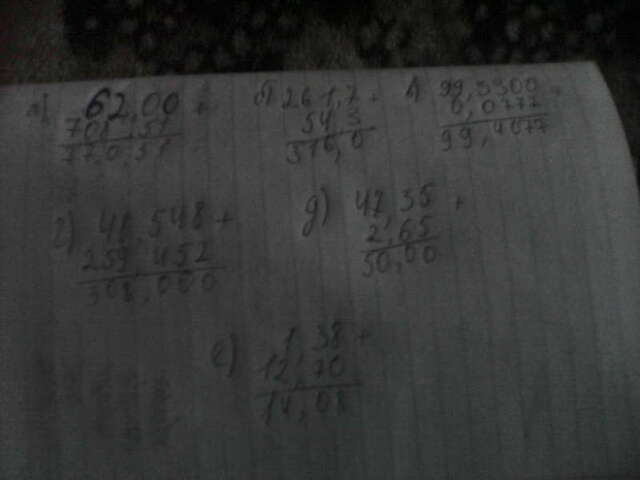 а) 62,00 +
708,51
770,51
б) 261,7 +
54,3
316,0
в) 99,3300 +
0,0777
99,4077
г) 48,548 +
259,452
308,000
д) 47,35 +
2,65
50,00
е) 1,38 +
12,70
14,08